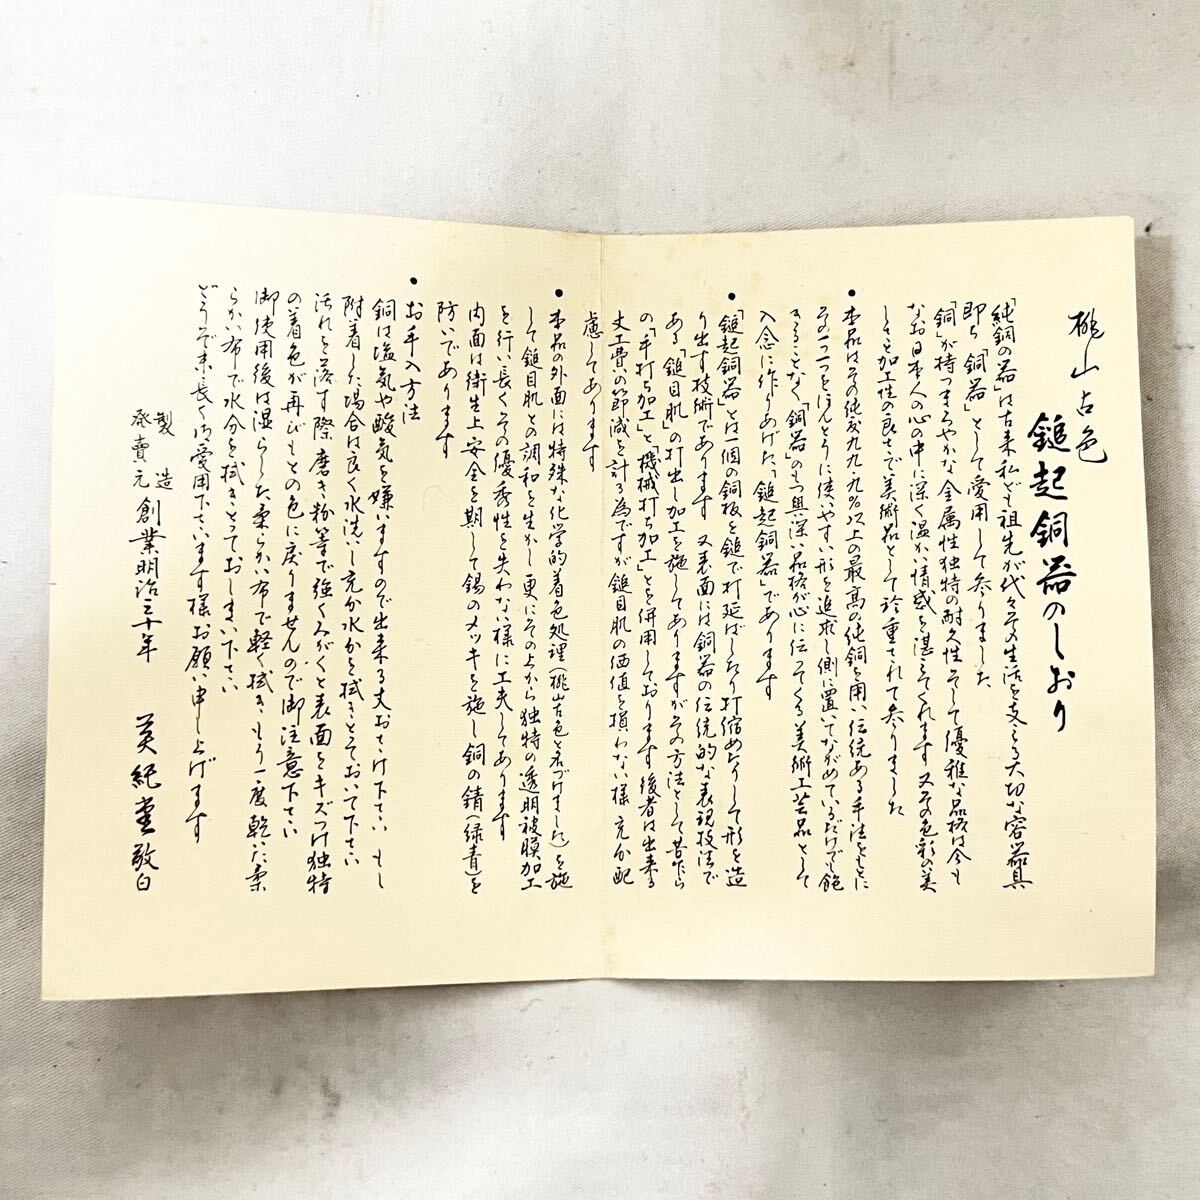 桃山古色
鎚起銅器のしおり
「純銅の器」は古来私ども祖先が代々その生活を支える大切な容器具
即ち「銅器」として愛用して参りました
「銅」が持つまろやかな金属性独特の耐久性そして優雅な品格は今も
なお日本人の心の中に深く温かい情感を湛えてくれます 又その色彩の美
しさと加工性の良さで美術品として珍重されて参りました
●本品はその純度九九.九九%以上の最高の純銅を用い伝統ある手法をもとに
その一つ一つをほんとうに使いやすい形を追求し側に置いてながめているだけでも飽
きることなく「銅器」のもつ奥深い品格が心に伝ってくる美術工芸品として
入念に作りあげた、「鎚起銅器」であります
●「鎚起銅器」とは一個の銅板を鎚で打延ばしたり打縮めたりして形を造
り出す技術であります 又表面には銅器の伝統的な表現技法で
ある「鎚目肌」の打出し加工を施してありますがその方法として昔乍ら
の「手打ち加工」と「機械打ち加工」とを併用しております 後者は出来る
丈工費の節減を計る為ですが鎚目肌の価値を損わない様 充分配
慮してあります
●本品の外面には特殊な化学的着色処理(桃山古色と名づけました)を施
して鎚目肌との調和を生かし更にその上から独特の透明被膜加工
を行い長くその優秀性を失わない様に工夫してあります
内面は衛生上安全を期して錫のメッキを施し銅の錆(緑青)を
防いであります
●お手入方法
銅は塩気や酸気を嫌いますので出来る丈おさけ下さい もし
附着した場合は良く水洗いし充分水分を拭きとっておいて下さい
汚れを落す際磨き粉等で強くみがくと表面をキズつけ独特
の着色が再びもとの色に戻りませんので御注意下さい
御使用後は湿らした柔らかい布で軽く拭きもう一度乾いた柔
らかい布で水分を拭きとっておしまい下さい
どうぞ末長く御愛用下さいます様お願い申し上げます
製造
発賣元 創業明治三十年 英紀堂敬白